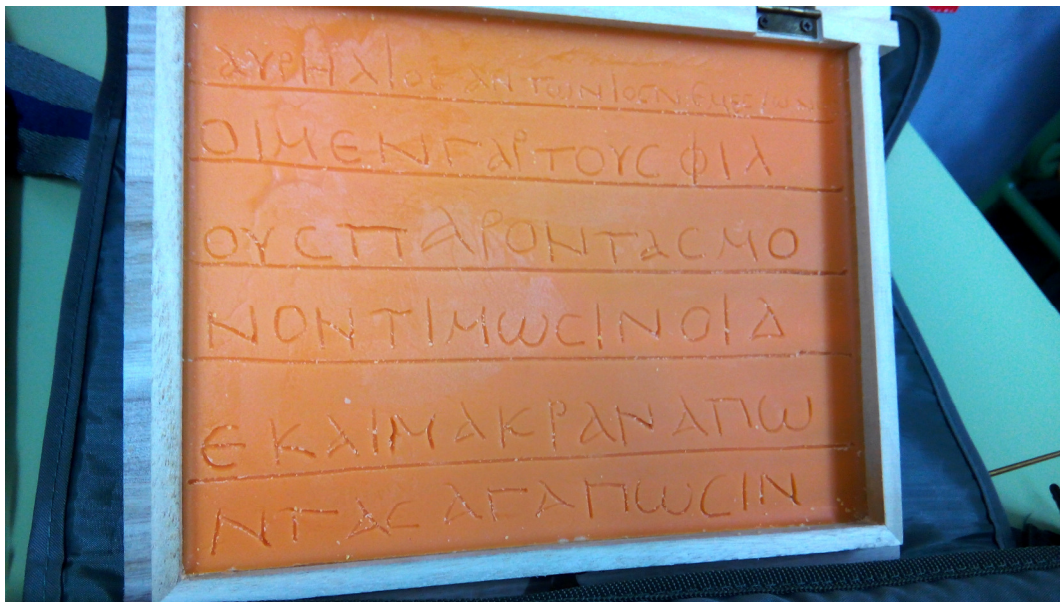 ΑΥΡΗΛΙΟϹΑΝΤΩΝΙΟϹΝΕΜΕϹΙΩΝ
ΟΙΜΕΝΓΑΡΤΟΥϹΦΙΛ
ΟΥϹΠΑΡΟΝΤΑϹΜΟ
ΝΟΝΤΙΜΩϹΙΝΟΙΔ
ΕΚΑΙΜΑΚΡΑΝΑΠΩ
ΝΤΑϹΑΓΑΠΩϹΙΝ